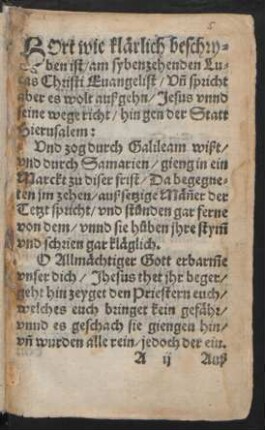 HOrt wie klärlich beschry-
ben ist / am sybenzehenden Lu-
cas Christi Euangelist / Vñ spricht
aber es wolt auffgehn / Jesus vnnd
seine wege richt / hin gen der Statt
Hierusalem:
Vnd zog durch Galileam wißt /
vnd durch Samarien / gieng in ein
Marckt zu diser frist / Da begegne-
ten jm zehen / aussetzige Mäñer der
Tetzt spricht / vnd stůnden gar ferne
von dem / vnnd sie hůben jhre stym̃
vnd schrien gar kläglich.
O Allmächtiger Gott erbarm̃e
vnser dich / Jhesus thet jhr beger /
geht hin zeyget den Priestern euch /
welches euch bringet kein gefähr /
vnnd es geschach sie giengen hin /
vñ wurden alle rein / jedoch der ein.
A ij Auß